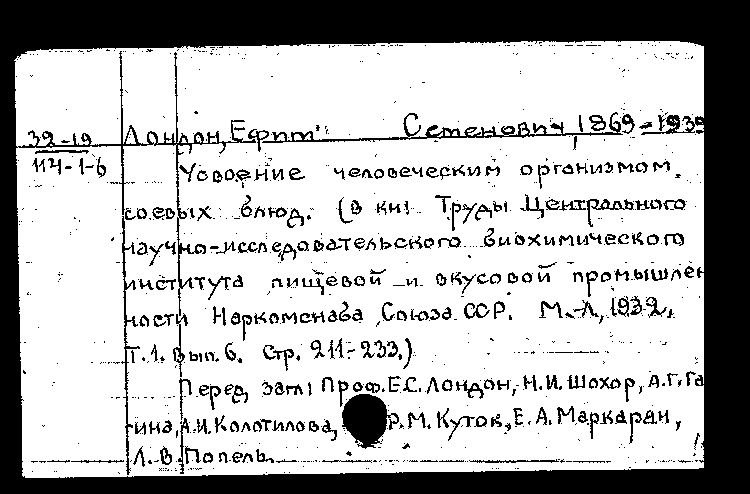 32-19 Лондон, Ефим Семенович, 1869-1939
114-1-6 Усвоение человеческим организмом
соевых блюд. (В кн: Труды Центрального
научно-исследовательского биохимического
института пищевой и вкусовой промышлен
ности Наркомснаба Союза ССР. М.-Л, 1932.
Т.1. Вып. 6. Стр. 211-233.)
Перед загл: Проф. Е.С. Лондон, Н.И. Шохор, А.Г. Га
гина, А.И. Колотилова, Р.М. Куток, Е.А. Маркарян,
Л.В. Попель.